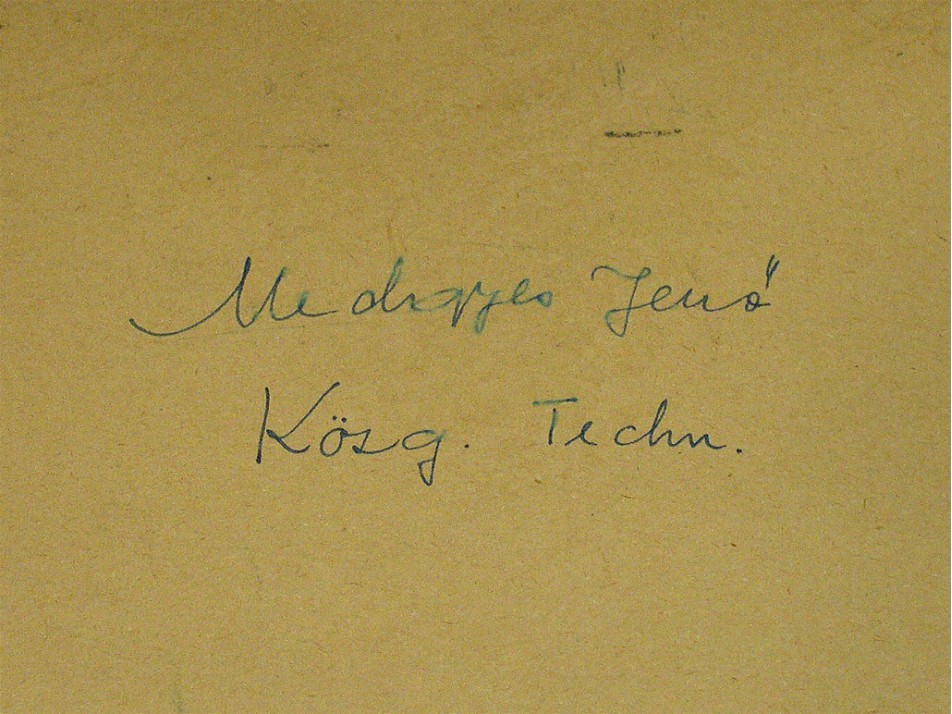 Medgyes Jenő
Közg. Techn.